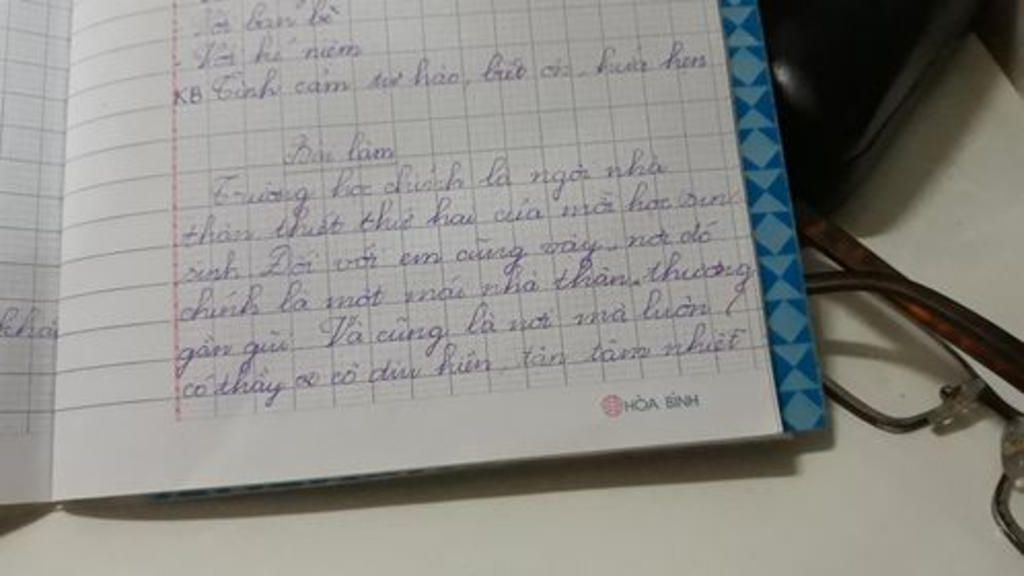 Tả bạn bè
- Tả kỉ niệm
KB Tình cảm tự hào, biết ơn, hứa hẹn
Bài làm
Trường học chính là ngôi nhà
thân thiết thứ hai của mỗi học sinh
sinh Đối với em cũng vậy, nơi đó
chính là một mái nhà thân thương
gần gũi. Và cũng là nơi mà luôn
có thầy cô dịu hiền, tận tâm nhiệt
khái
HÒA BÌNH